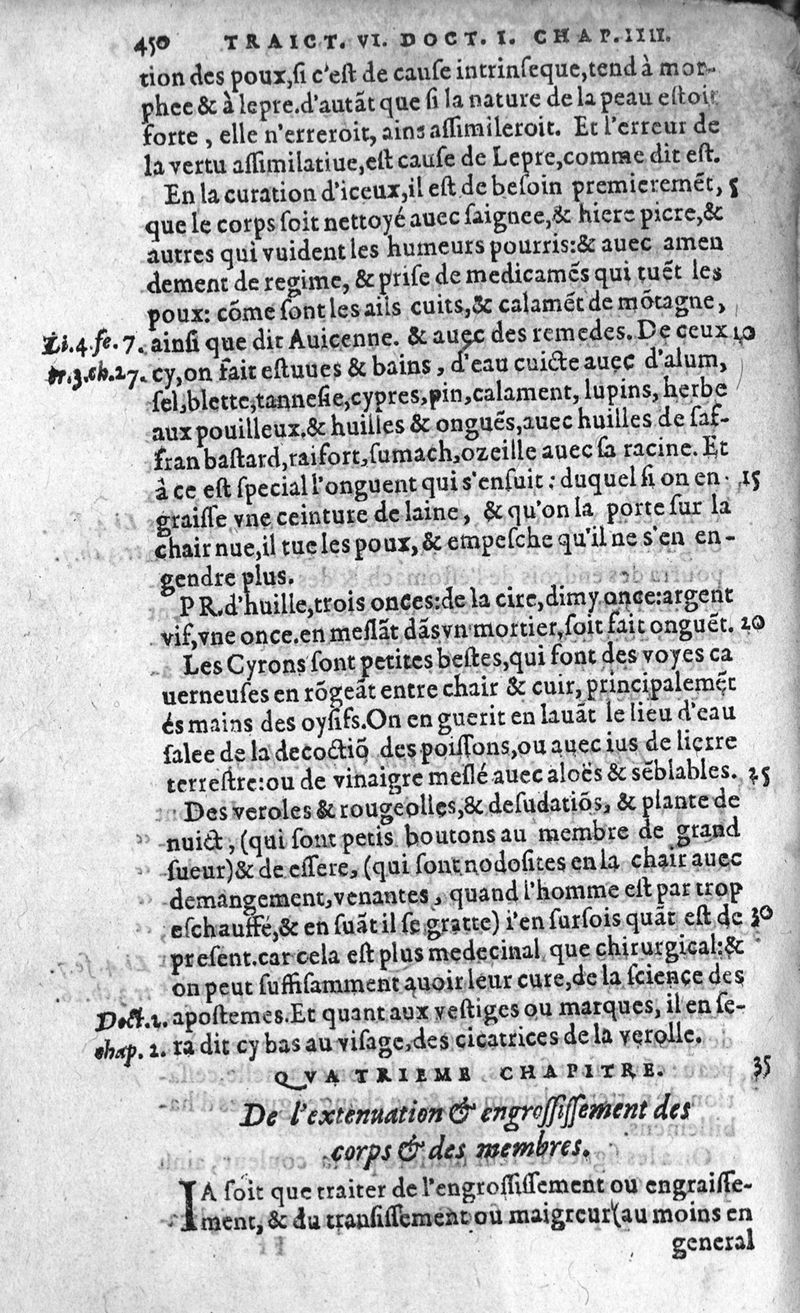 450 TRAICT. VI. DOCT. I. CHAP. IIII.
tion des poux, si c'est de cause intrinseque, tend à mor-
phee & à lepre. d'autãt que si la nature de la peau estoit
forte, elle n'erreroit, ains assimileroit. Et l'erreur de
la vertu assimilatiue, est cause de Lepre, comme dit est.
En la curation d'iceux, il est de besoin premieremẽt, 5
que le corps soit nettoyé auec saignee, & hiere picre, &
autres qui vuident les humeurs pourris: & auec amen
dement de regime, & prise de medicamẽs qui tuẽt les
poux: cõme sont les ails cuits, & calamẽt de mõtagne,
Li. 4. fe. 7. ainsi que dit Auicenne. & auec des remedes. De ceux 10
tr. 3. ch. 27. cy, on fait estuues & bains, d'eau cuicte auec d'alum,
sel, blette, tannesie, cypres, pin, calament, lupins, herbe
aux pouilleux. & huilles & onguẽs, auec huilles de saf-
fran bastard, raifort, sumach, ozeille auec sa racine. Et
à ce est special l'onguent qui s'ensuit: duquel si on en 15
graisse vne ceinture de laine, & qu'on la porte sur la
chair nue, il tue les poux, & empesche qu'il ne s'en en-
gendre plus.
PR. d'huille, trois onces: de la cire, dimy once: argent
vif, vne once. en meslãt dãs vn mortier, soit fait onguẽt. 20
Les Cyrons sont petites bestes, qui font des voyes ca
uerneuses en rõgeãt entre chair & cuir, principalemẽt
és mains des oysifs. On en guerit en lauãt le lieu d'eau
salee de la decoctiõ des poissons, ou auec ius de lierre
terrestre: ou de vinaigre meslé auec aloës & sẽblables. 25
Des veroles & rougeolles, & desudatiõs, & plante de
nuict, (qui sont petis boutons au membre de grand
sueur) & de essere, (qui sont nodosites en la chair auec
demangement, venantes, quand l'homme est par trop
eschauffé, & en suãt il se gratte) i'en sursois quãt est de 30
present. car cela est plus medecinal que chirurgical: &
on peut suffisamment auoir leur cure, de la science des
Doct. 2. apostemes. Et quant aux vestiges ou marques, il en se-
chap. 2. ra dit cy bas au visage, des cicatrices de la verolle.
QVATRIEME CHAPITRE. 35
De l'extenuation & engrossissement des
corps & des membres.
IA soit que traiter de l'engrossissement ou engraisse-
ment, & du transissement ou maigreur (au moins en
general